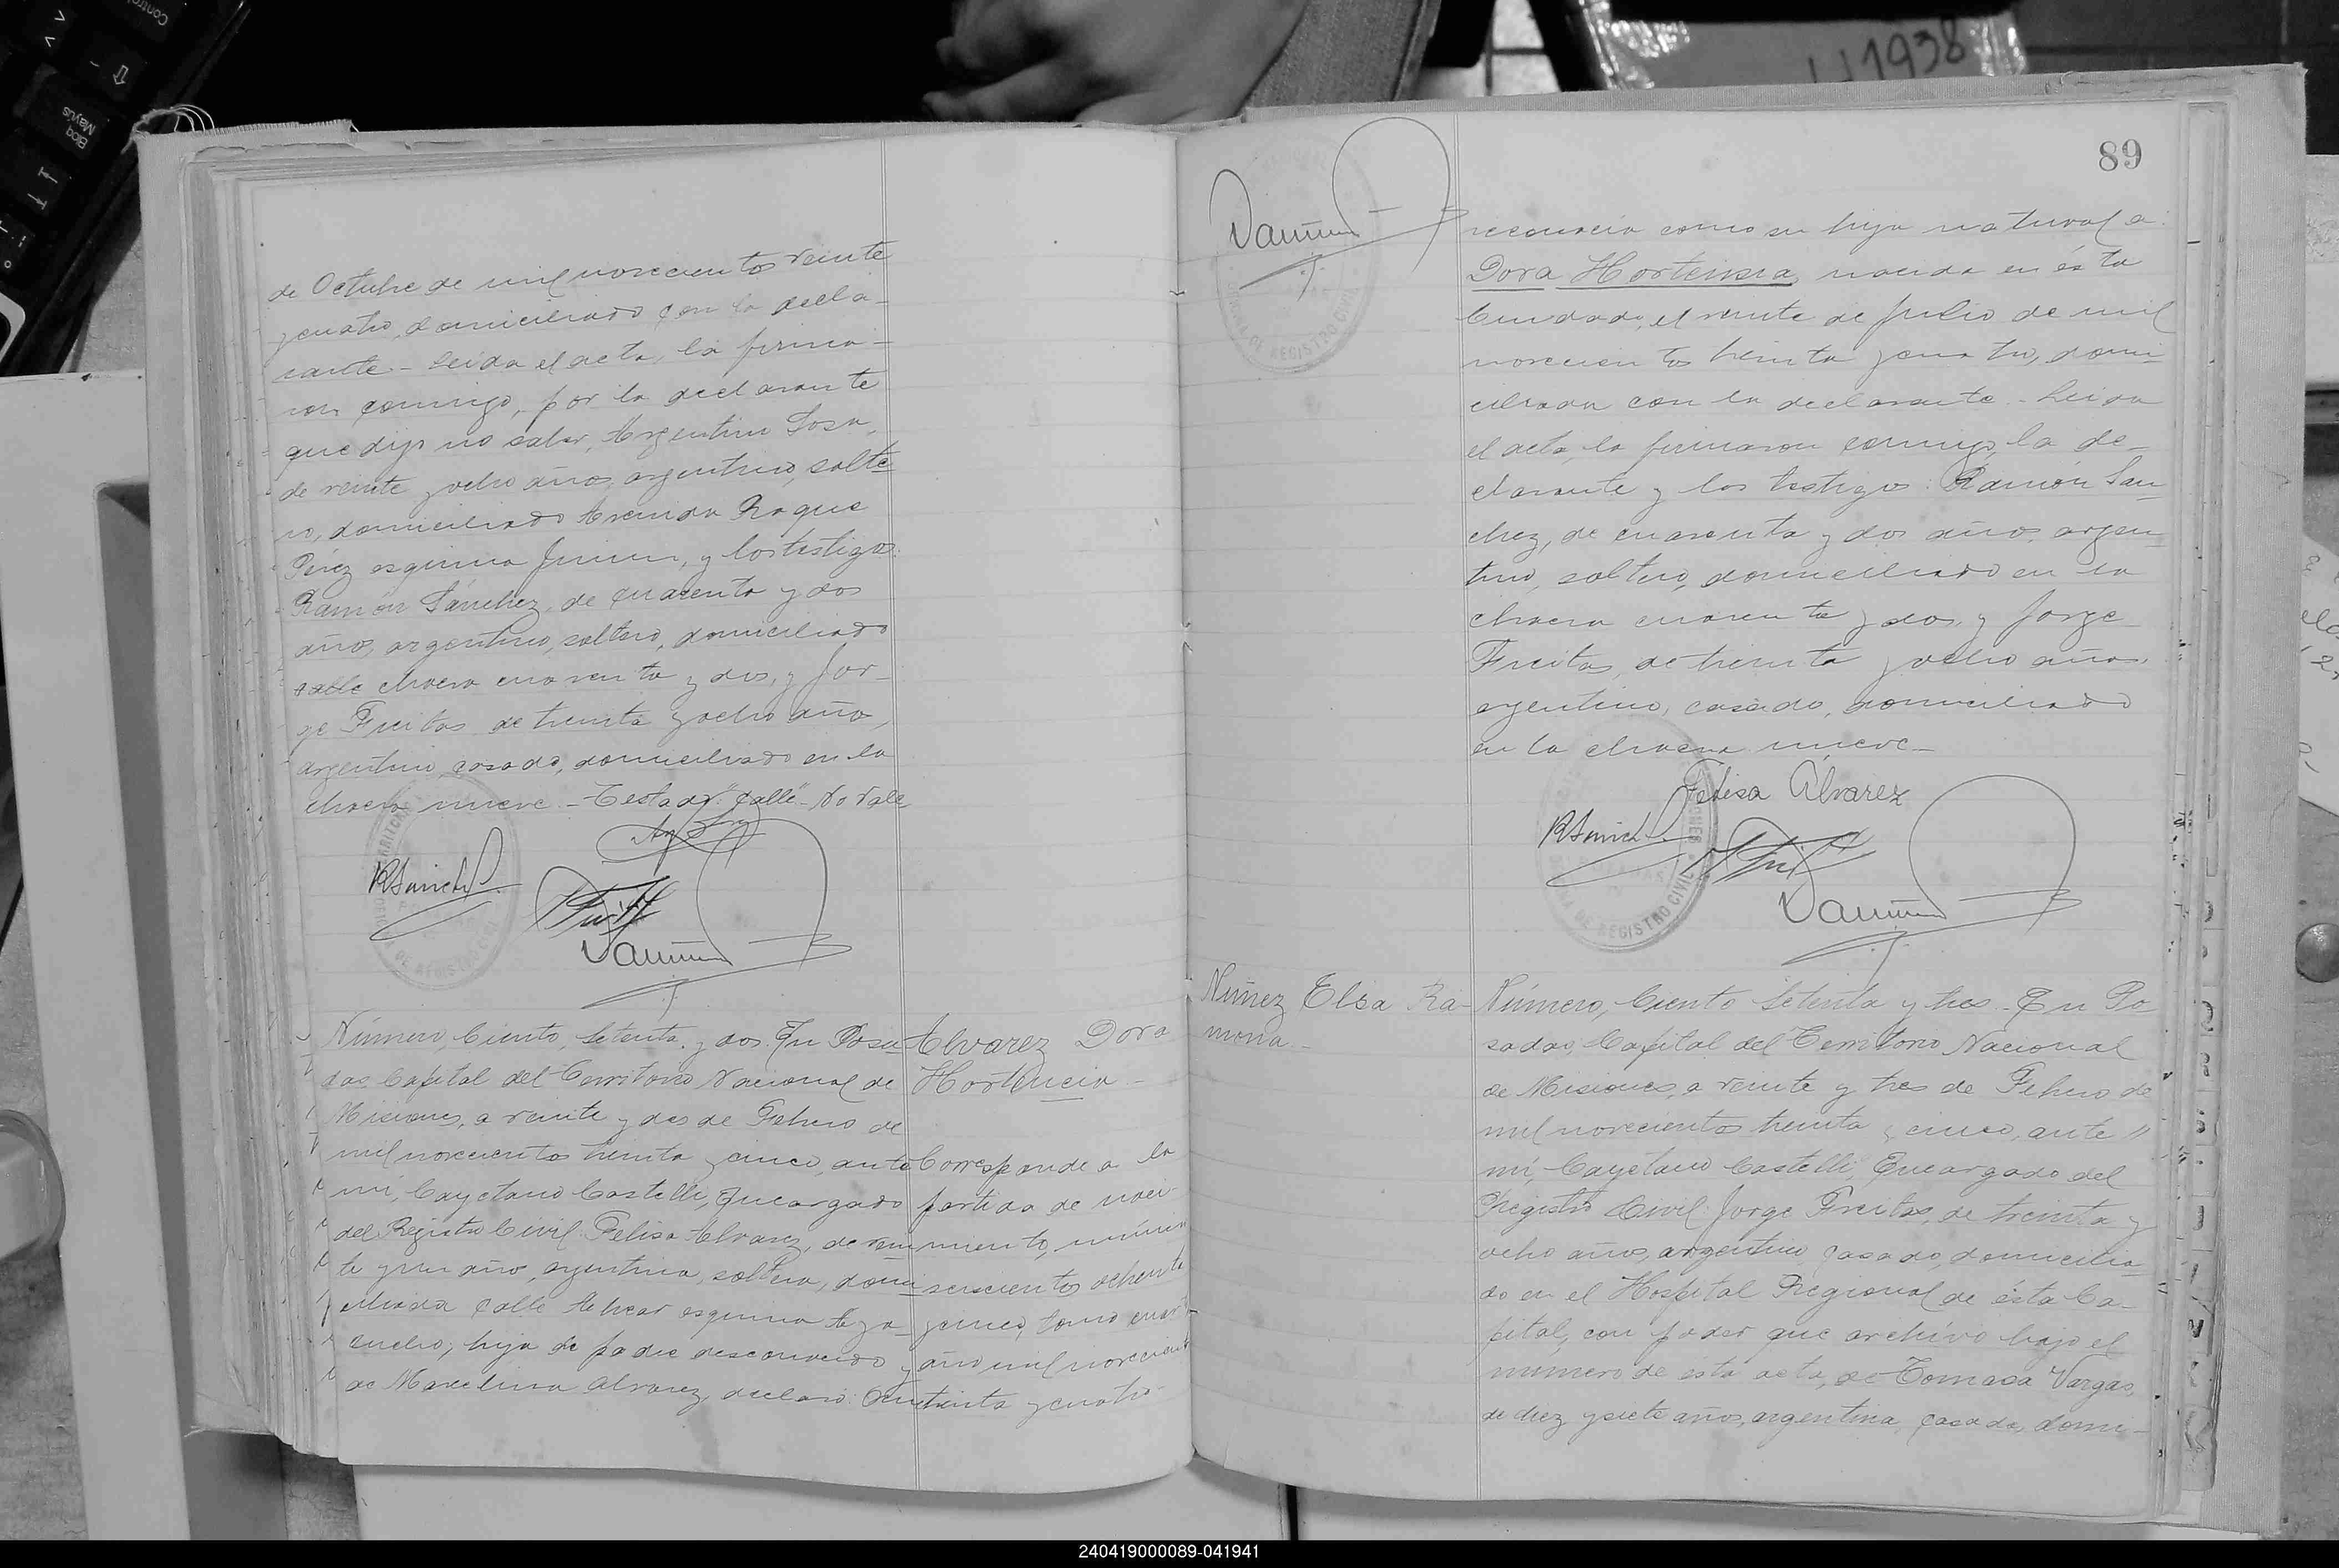 de Octubre de mil novecientos veinte
y cuatro, domiciliado con la decla-
rante.- Leida el acta, la firma-
ron conmigo, por la declarante
que dijo no saber, Argentino Sosa,
de veinte y ocho años, argentino, solte-
ro, domiciliado Avenida Roque
Pérez esquina Junin, y los testigos:
Ramón Sánchez, de cuarenta y dos
años, argentino, soltero, domiciliado
calle chacra cuarenta y dos, y Jor-
ge Freitas de treinta y ocho años,
argentino, casado, domiciliado en la
chacra nueve.- Testado: "calle"- No vale
Número, Ciento, Setenta, y dos. En Posa-
das Capital del Territorio Nacional de
Misiones, a veinte y dos de Febrero de
mil novecientos treinta y cinco, ante
mi, Cayetano Castelli, Encargado
del Registro Civil: Felisa Alvarez, de vein
te y un años, argentina, soltera, domi-
ciliada calle Alvear esquina Aya-
cucho; hija de padre desconocido y
de Marcelina Alvarez, declaró: Que
Alvarez Dora
Hortencia-
Corresponde a la
partida de naci-
miento, número
seiscientos ochenta
y cinco, tomo cuarto
año mil novecientos
treinta y cuatro-
89
reconocia como su hija natural a:
Dora Hortensia, nacida en ésta
Ciudad, el veinte de Julio de mil
novecientos treinta y cuatro, domi-
ciliada con la declarante.- Leida
el acta, la firmaron conmigo, la de-
clarante y los testigos: Ramón San-
chez, de cuarenta y dos años, argen-
tino, soltero, domiciliado en la
chacra cuarenta y dos, y Jorge
Freitas, de treinta y ocho años,
argentino, casado, domiciliado
en la chacra nueve-
Felisa Álvarez
Núñez Elsa Ra-
mona-
Número, Ciento Setenta y tres- En Po-
sadas, Capital del Territorio Nacional
de Misiones, a veinte y tres de Febrero de
mil novecientos treinta y cinco, ante
mi, Cayetano Castelli, Encargado del
Registro Civil: Jorge Freitas, de treinta y
ocho años, argentino casado, domicilia-
do en el Hospital Regional de ésta Ca-
pital, con poder que archivo bajo el
numero de esta acta, de Tomasa Vargas,
de diez y siete años, argentina, casada, domi-
H1938
Bloq
Mayús
Control
DE REGISTRO CIVIL
240419000089-041941